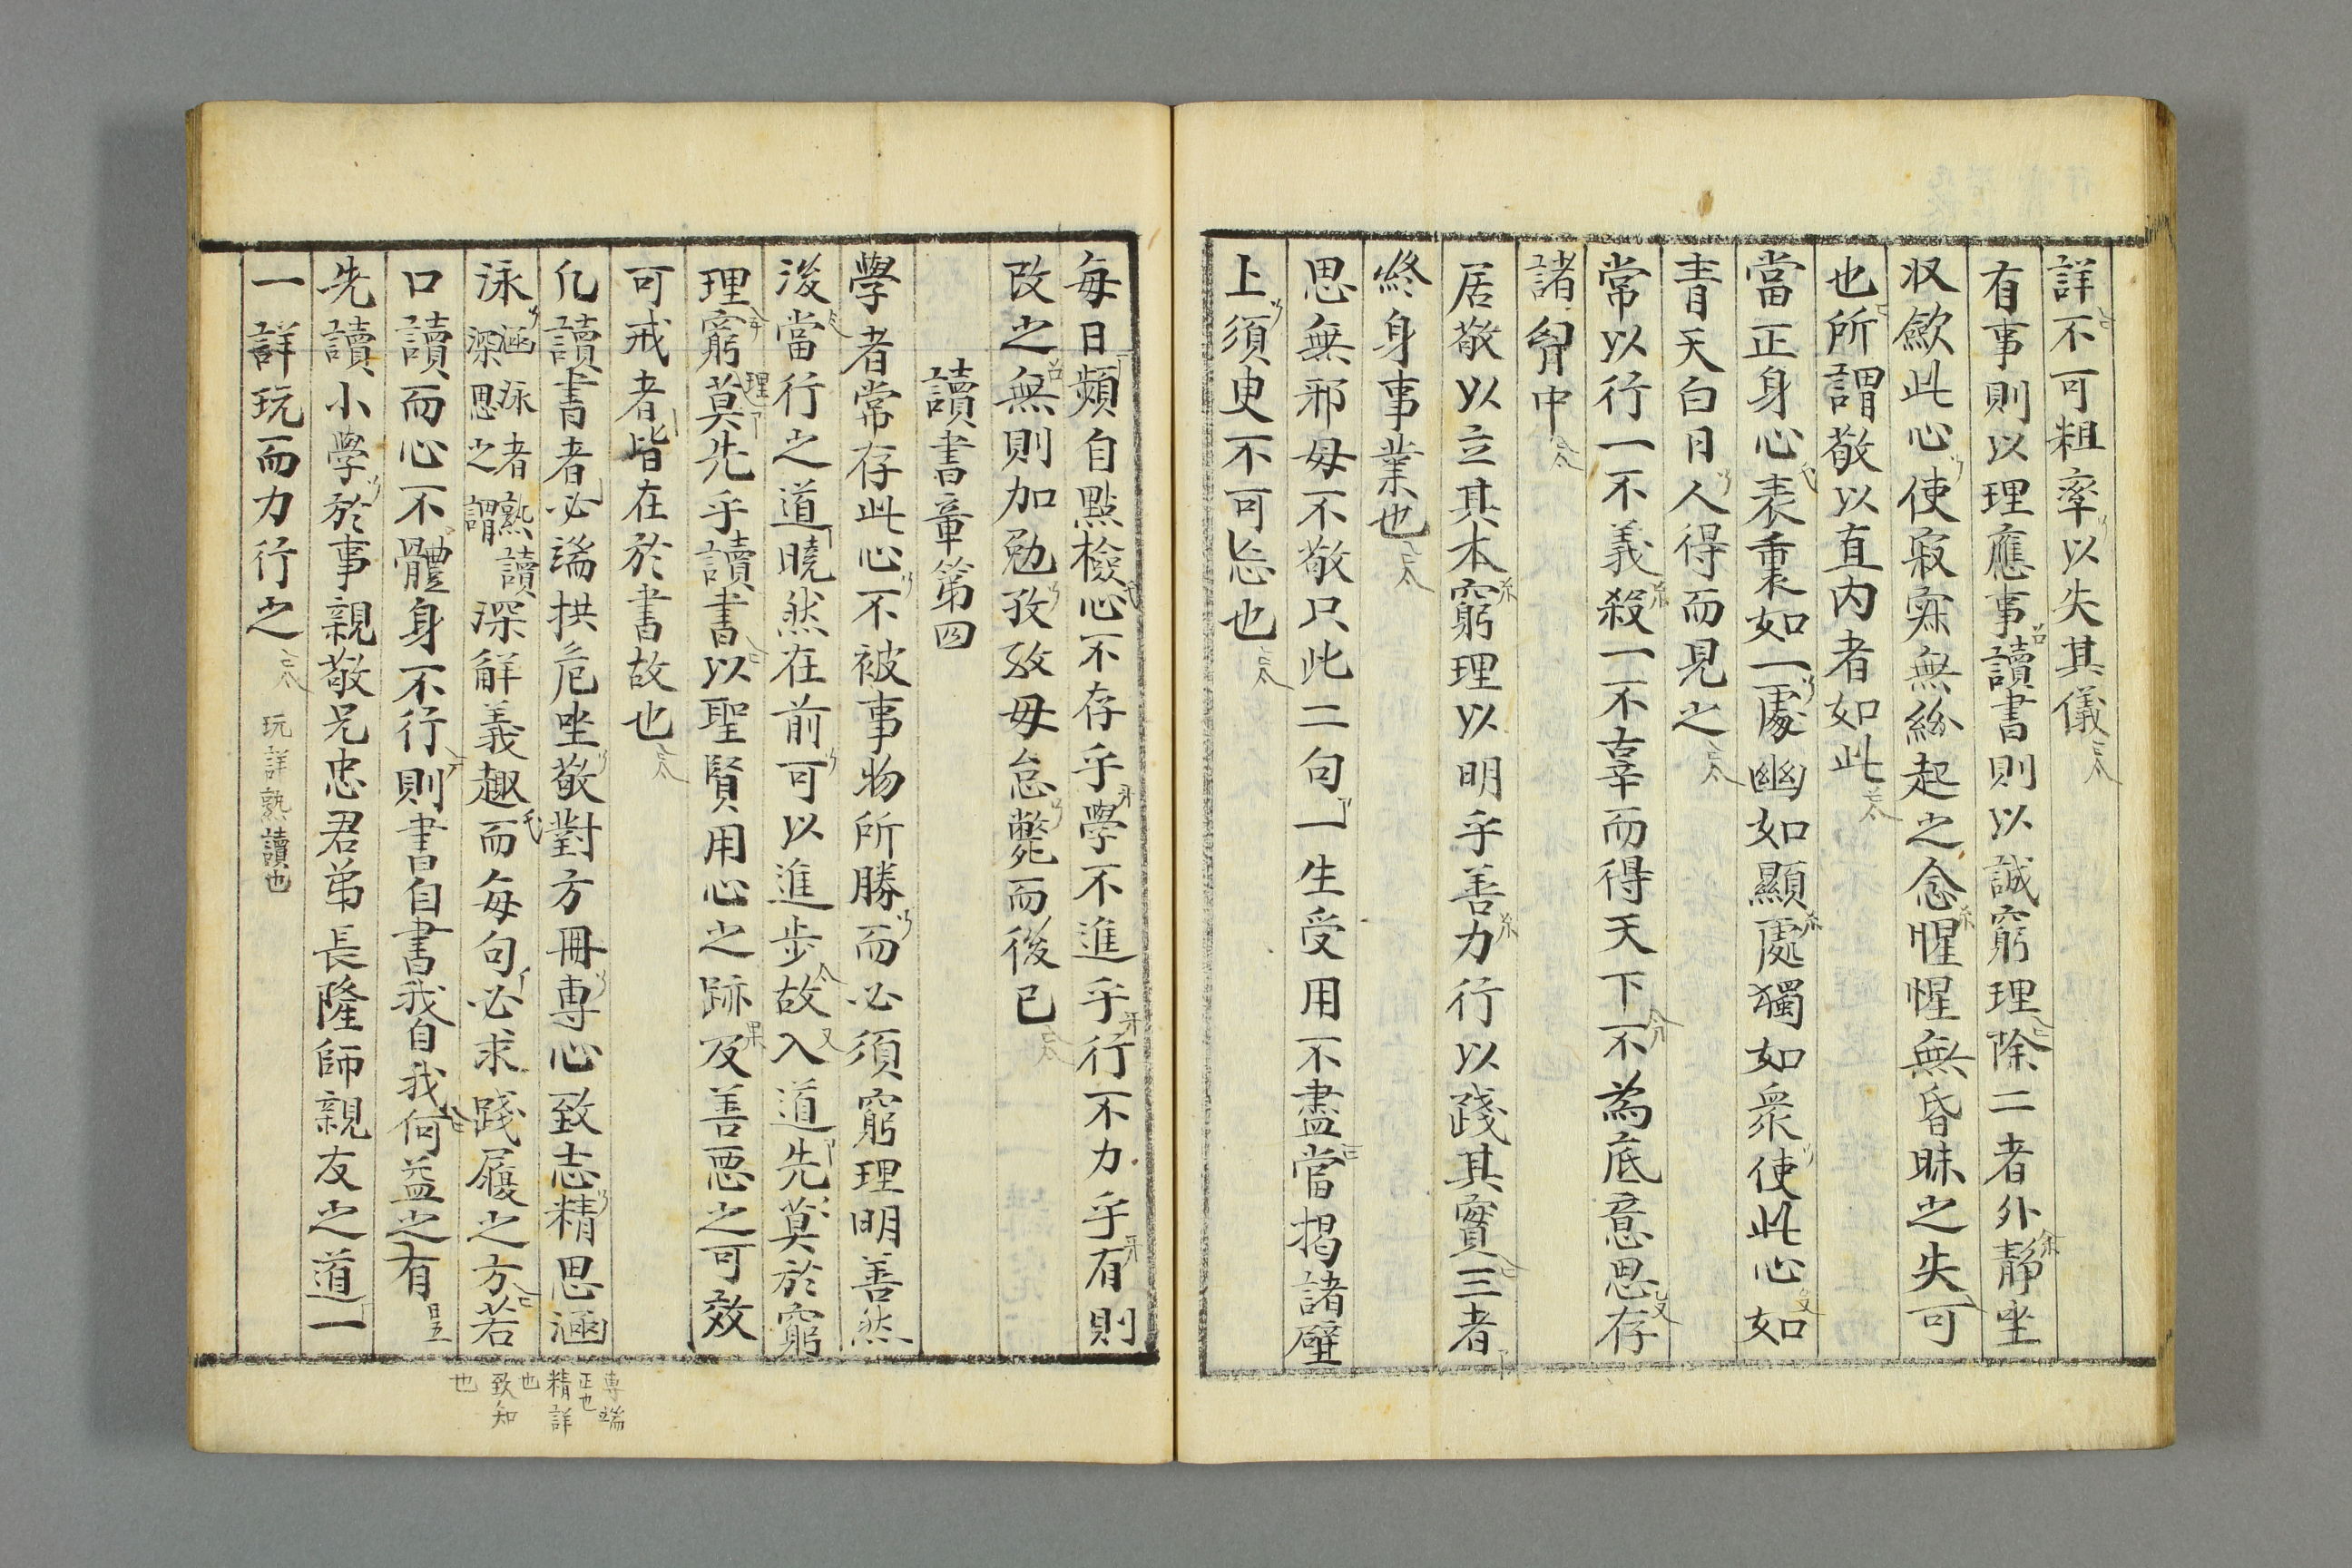 詳不可粗率以失其儀
有事則以理應事讀書則以誠窮理除二者外靜坐
収歛此心使寂寂無紛起之念惺惺無昏昧之失可
也所謂敬以直内者如此
當正身心表裏如一處幽如顯處獨如衆使此心如
青天白日人得而見之
常以行一不義殺一不辜而得天下不為底意思存
諸胷中
居敬以立其本窮理以明乎善力行以踐其實三者
終身事業也
思無邪毋不敬只此二句一生受用不盡當揭諸壁
上須臾不可忘也
每日頻自點檢心不存乎學不進乎行不力乎有則
改之無則加勉孜孜毋怠斃而後已
讀書章第四
學者常存此心不被事物所勝而必須窮理明善然
後當行之道曉然在前可以進步故入道先莫於窮
理窮理莫先乎讀書以聖賢用心之跡及善惡之可效
可戒者皆在於書故也
凡讀書者必端拱危坐敬對方冊專心致志精思涵
泳涵泳者熟讀深思之謂深解義趣而每句必求踐履之方若
口讀而心不體身不行則書自書我自我何益之有
先讀小學於事親敬兄忠君弟長隆師親友之道一
一詳玩而力行之
玩詳熟讀也
専端
正也
精詳
也
致知
也